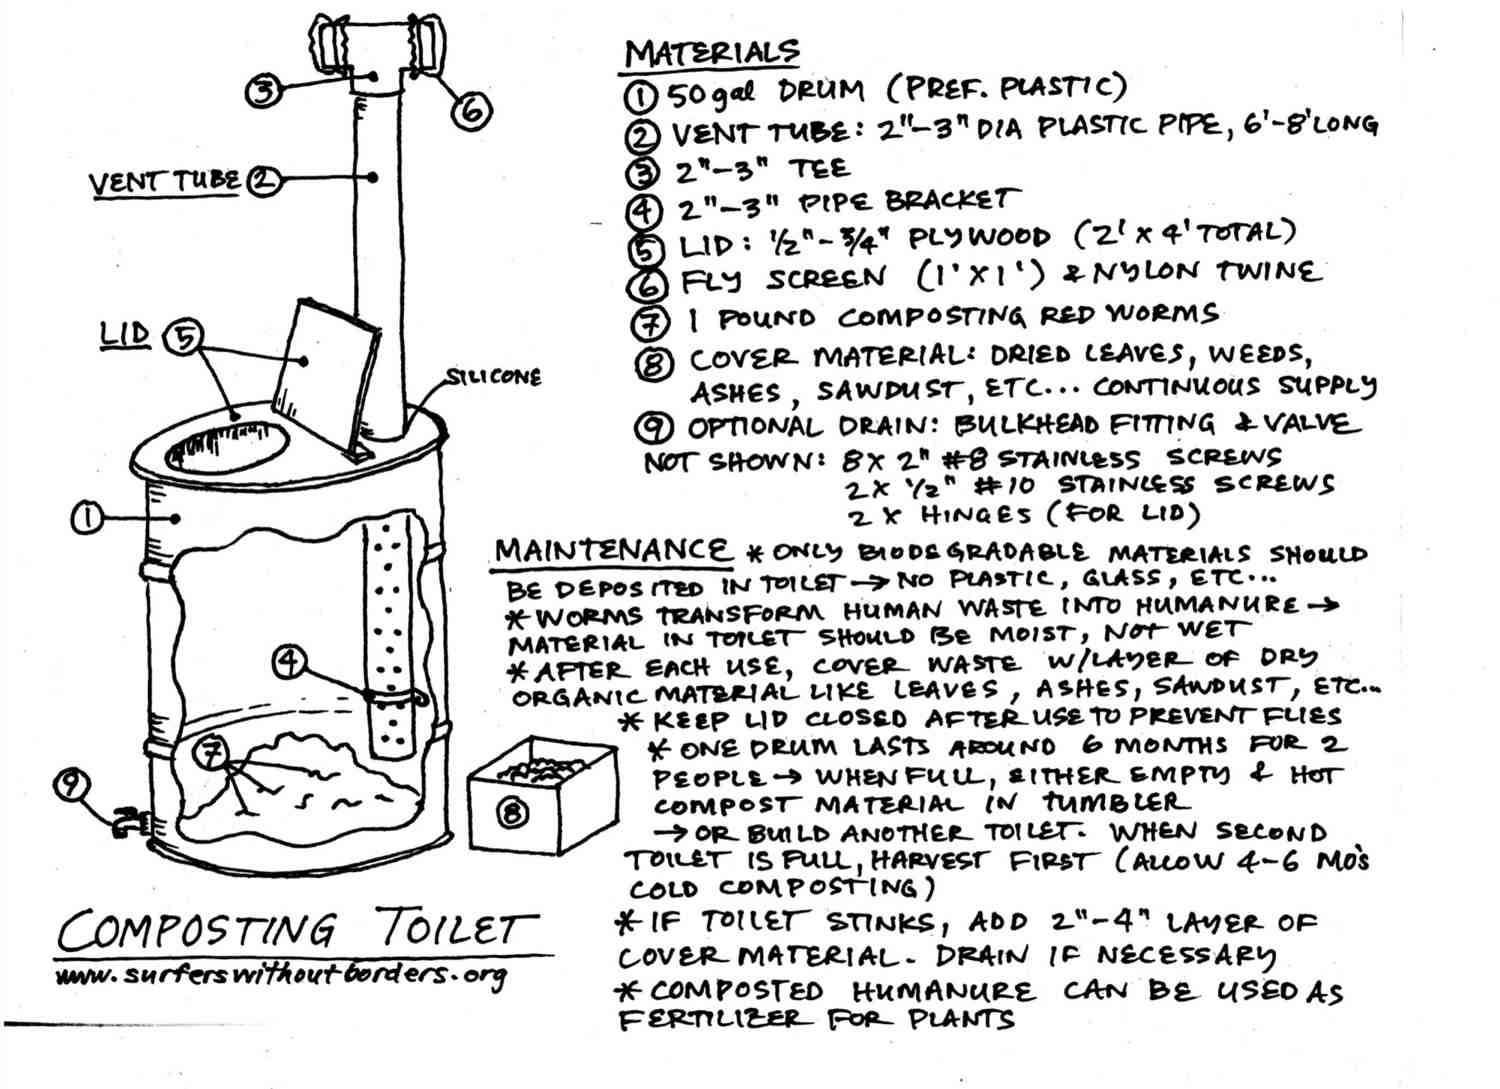 MATERIALS
① 50 gal DRUM (PREF. PLASTIC)
② VENT TUBE: 2"-3" DIA PLASTIC PIPE, 6'-8' LONG
③ 2"-3" TEE
④ 2"-3" PIPE BRACKET
⑤ LID: 1/2"-3/4" PLYWOOD (2' X 4' TOTAL)
⑥ FLY SCREEN (1' X 1') & NYLON TWINE
⑦ 1 POUND COMPOSTING RED WORMS
⑧ COVER MATERIAL: DRIED LEAVES, WEEDS,
ASHES, SAWDUST, ETC... CONTINUOUS SUPPLY
⑨ OPTIONAL DRAIN: BULKHEAD FITTING & VALVE
NOT SHOWN: 8 X 2" #8 STAINLESS SCREWS
2 X 1/2" #10 STAINLESS SCREWS
2 X HINGES (FOR LID)
MAINTENANCE * ONLY BIODEGRADABLE MATERIALS SHOULD
BE DEPOSITED IN TOILET → NO PLASTIC, GLASS, ETC...
* WORMS TRANSFORM HUMAN WASTE INTO HUMANURE →
MATERIAL IN TOILET SHOULD BE MOIST, NOT WET
* AFTER EACH USE, COVER WASTE W/LAYER OF DRY
ORGANIC MATERIAL LIKE LEAVES, ASHES, SAWDUST, ETC...
* KEEP LID CLOSED AFTER USE TO PREVENT FLIES
* ONE DRUM LASTS AROUND 6 MONTHS FOR 2
PEOPLE → WHEN FULL, EITHER EMPTY & HOT
COMPOST MATERIAL IN TUMBLER
→ OR BUILD ANOTHER TOILET. WHEN SECOND
TOILET IS FULL, HARVEST FIRST (ALLOW 4-6 MO'S
COLD COMPOSTING)
* IF TOILET STINKS, ADD 2"-4" LAYER OF
COVER MATERIAL. DRAIN IF NECESSARY
* COMPOSTED HUMANURE CAN BE USED AS
FERTILIZER FOR PLANTS
③
⑥
VENT TUBE ②
LID ⑤
SILICONE
①
④
⑦
⑨
⑧
COMPOSTING TOILET
www.surferswithoutborders.org